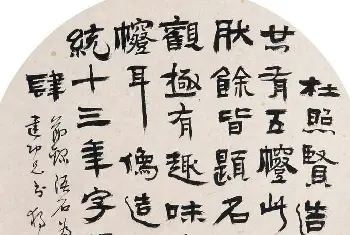 杜照賢造
共有五幢此
餘皆題名
觀極有趣味
幢耳偽造
統十三年字
肆
節語石
建功兄